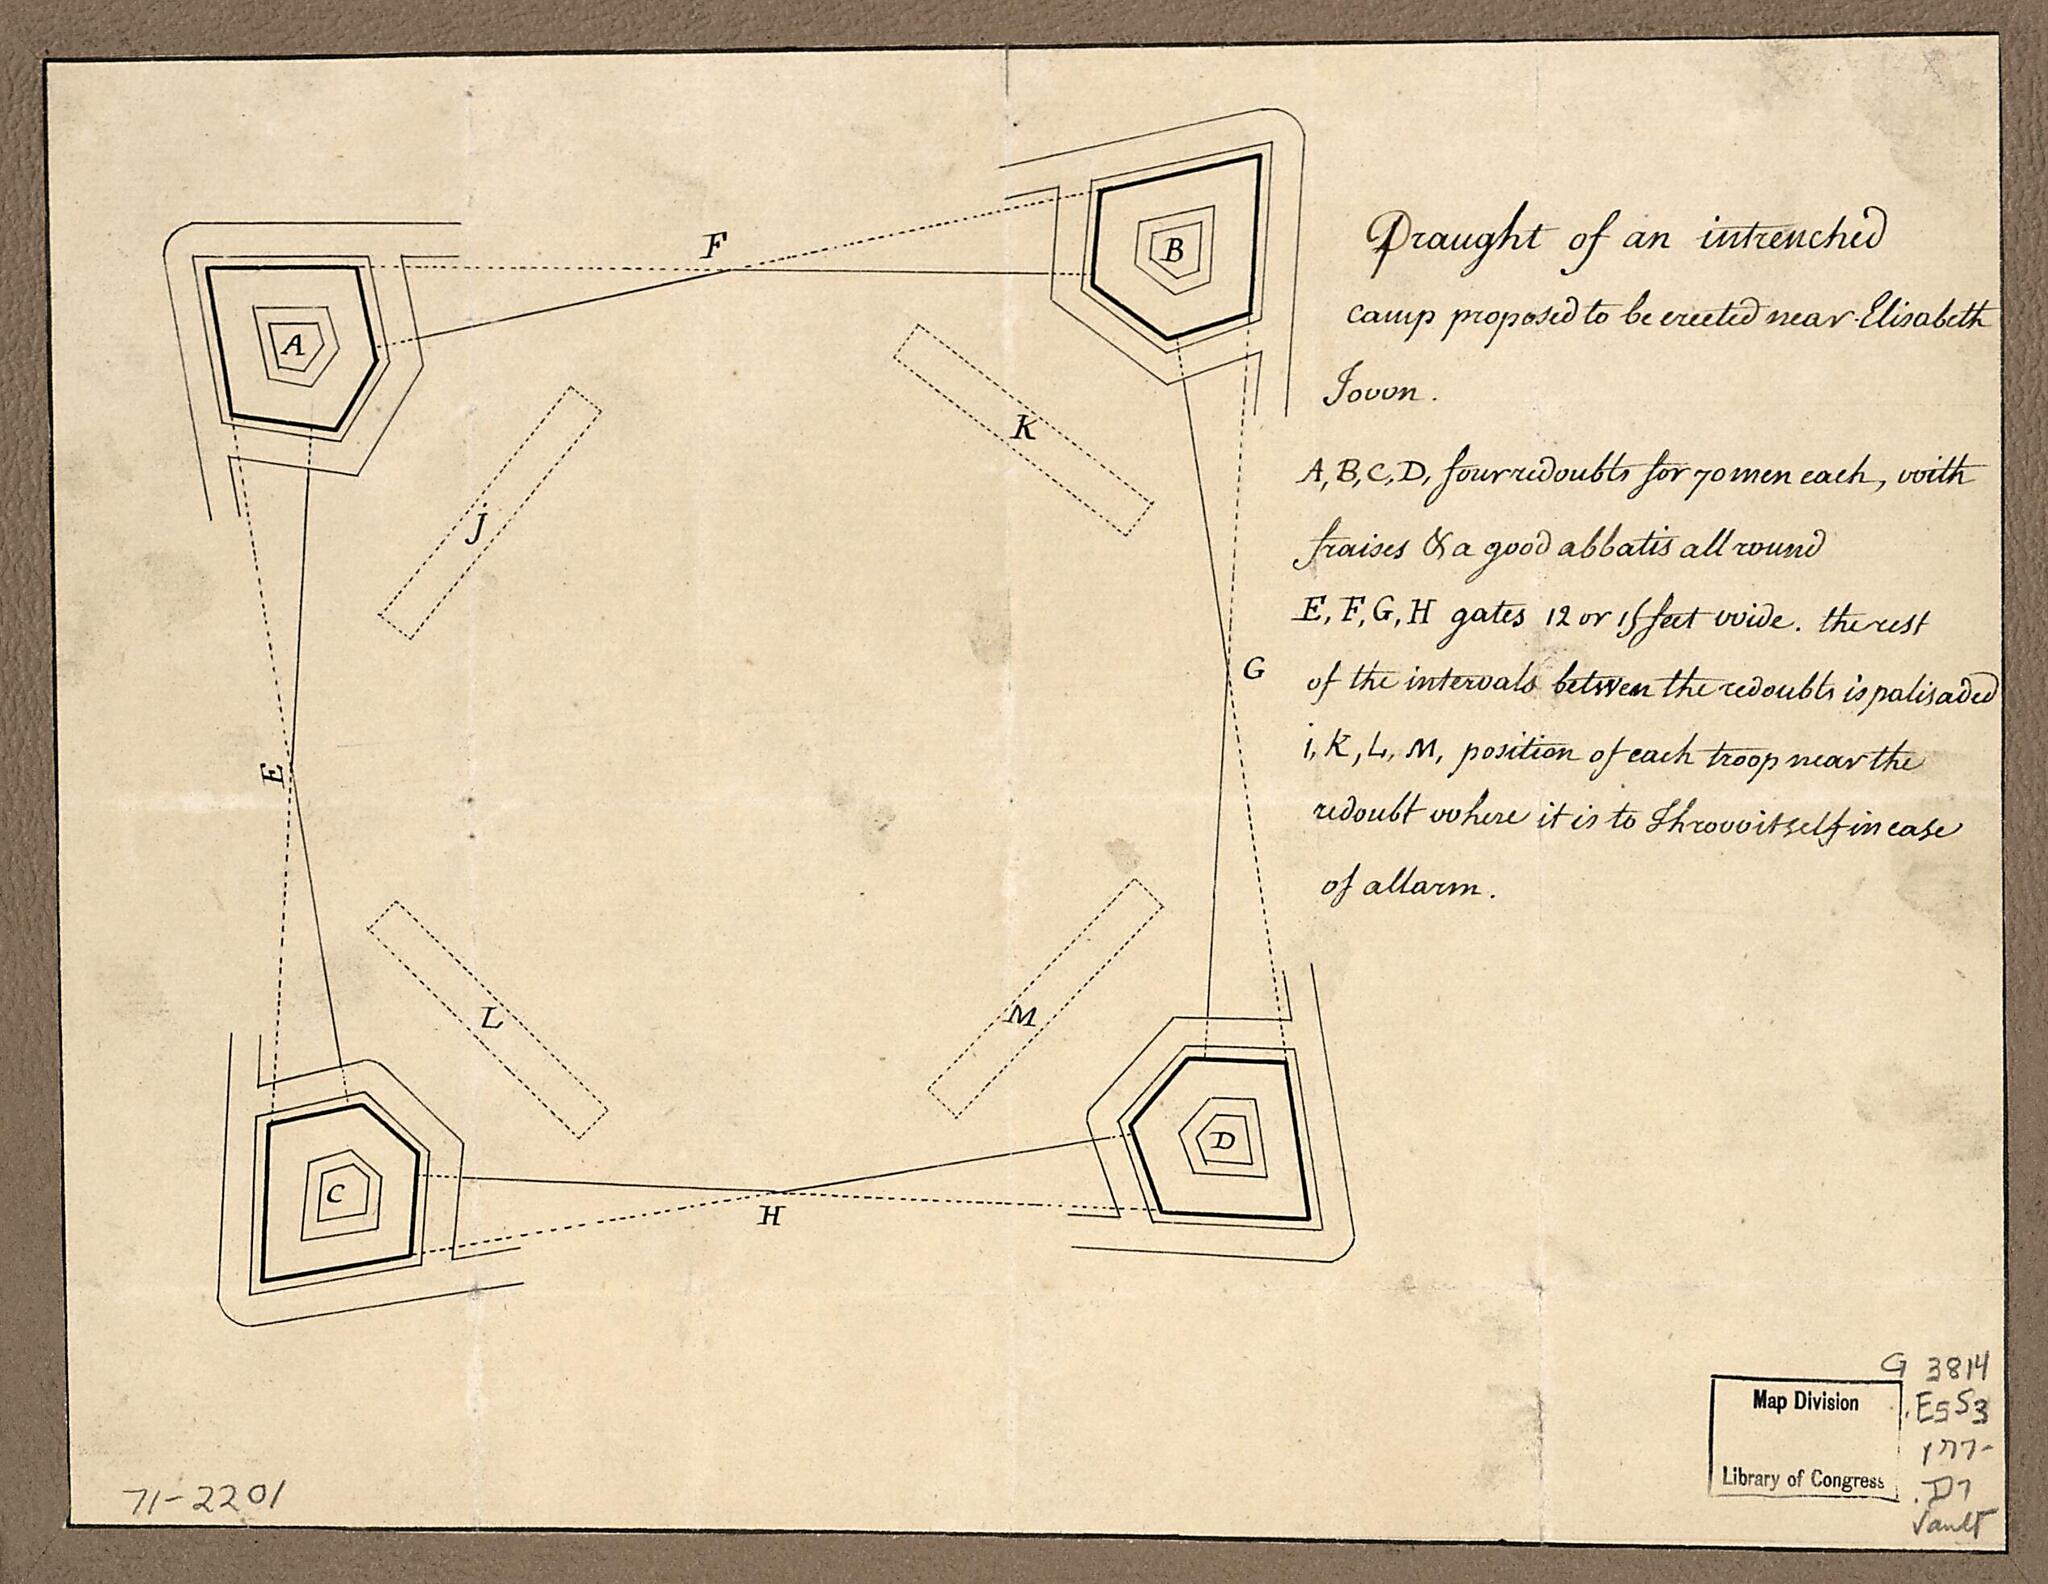 Draught of an intrenched
camp proposed to be erected near Elisabeth
Tovvn.
A, B, C, D, four redoubts for 70 men each, vvith
fraises & a good abbatis all round
E, F, G, H gates 12 or 15 feet vvide. the rest
of the intervals betwen the redoubts is palisaded
i, K, L, M, position of each troop near the
redoubt vvhere it is to Throvv it self in case
of allarm.
A
B
F
j
K
G
E
L
M
C
D
H
G 3814
.E5S3
177-
.D7
Vault
Map Division
Library of Congress
71-2201